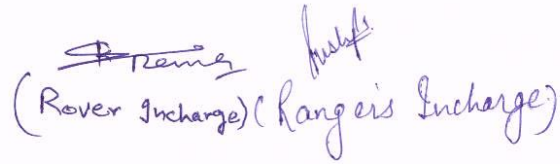 (Rover Incharge) (Rangers Incharge)